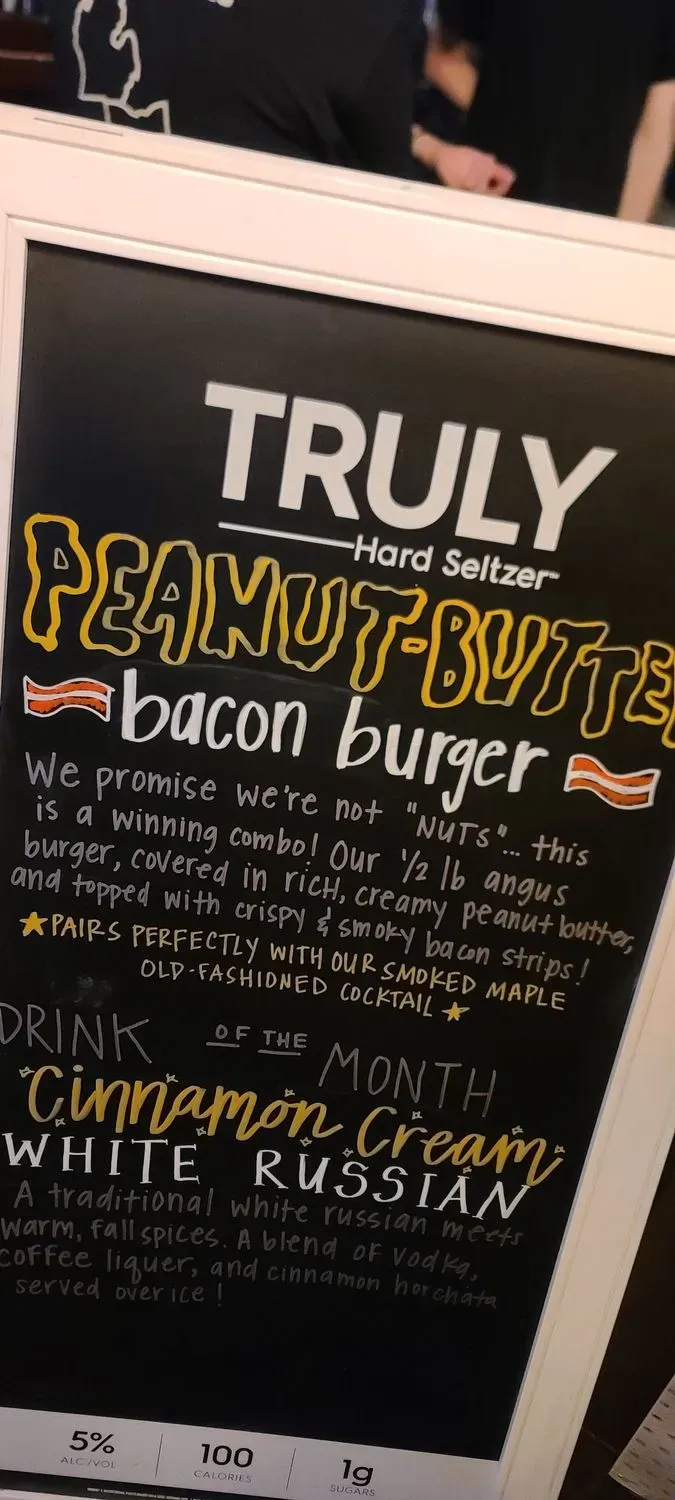 TRULY
Hard Seltzer™
PEANUT-BUTTE
bacon burger
We promise we're not "NUTs"... this
is a winning combo! Our 1/2 lb angus
burger, covered in ricH, creamy peanut butter,
and topped with crispy & smoky bacon strips!
★PAIRS PERFECTLY WITH OUR SMOKED MAPLE
OLD-FASHIONED COCKTAIL★
DRINK OF THE MONTH
Cinnamon Cream
WHITE RUSSIAN
A traditional white russian meets
warm, fall spices. A blend of vodka,
coffee liquer, and cinnamon horchata
served over ice!
5% 100 1g
ALC/VOL CALORIES SUGARS